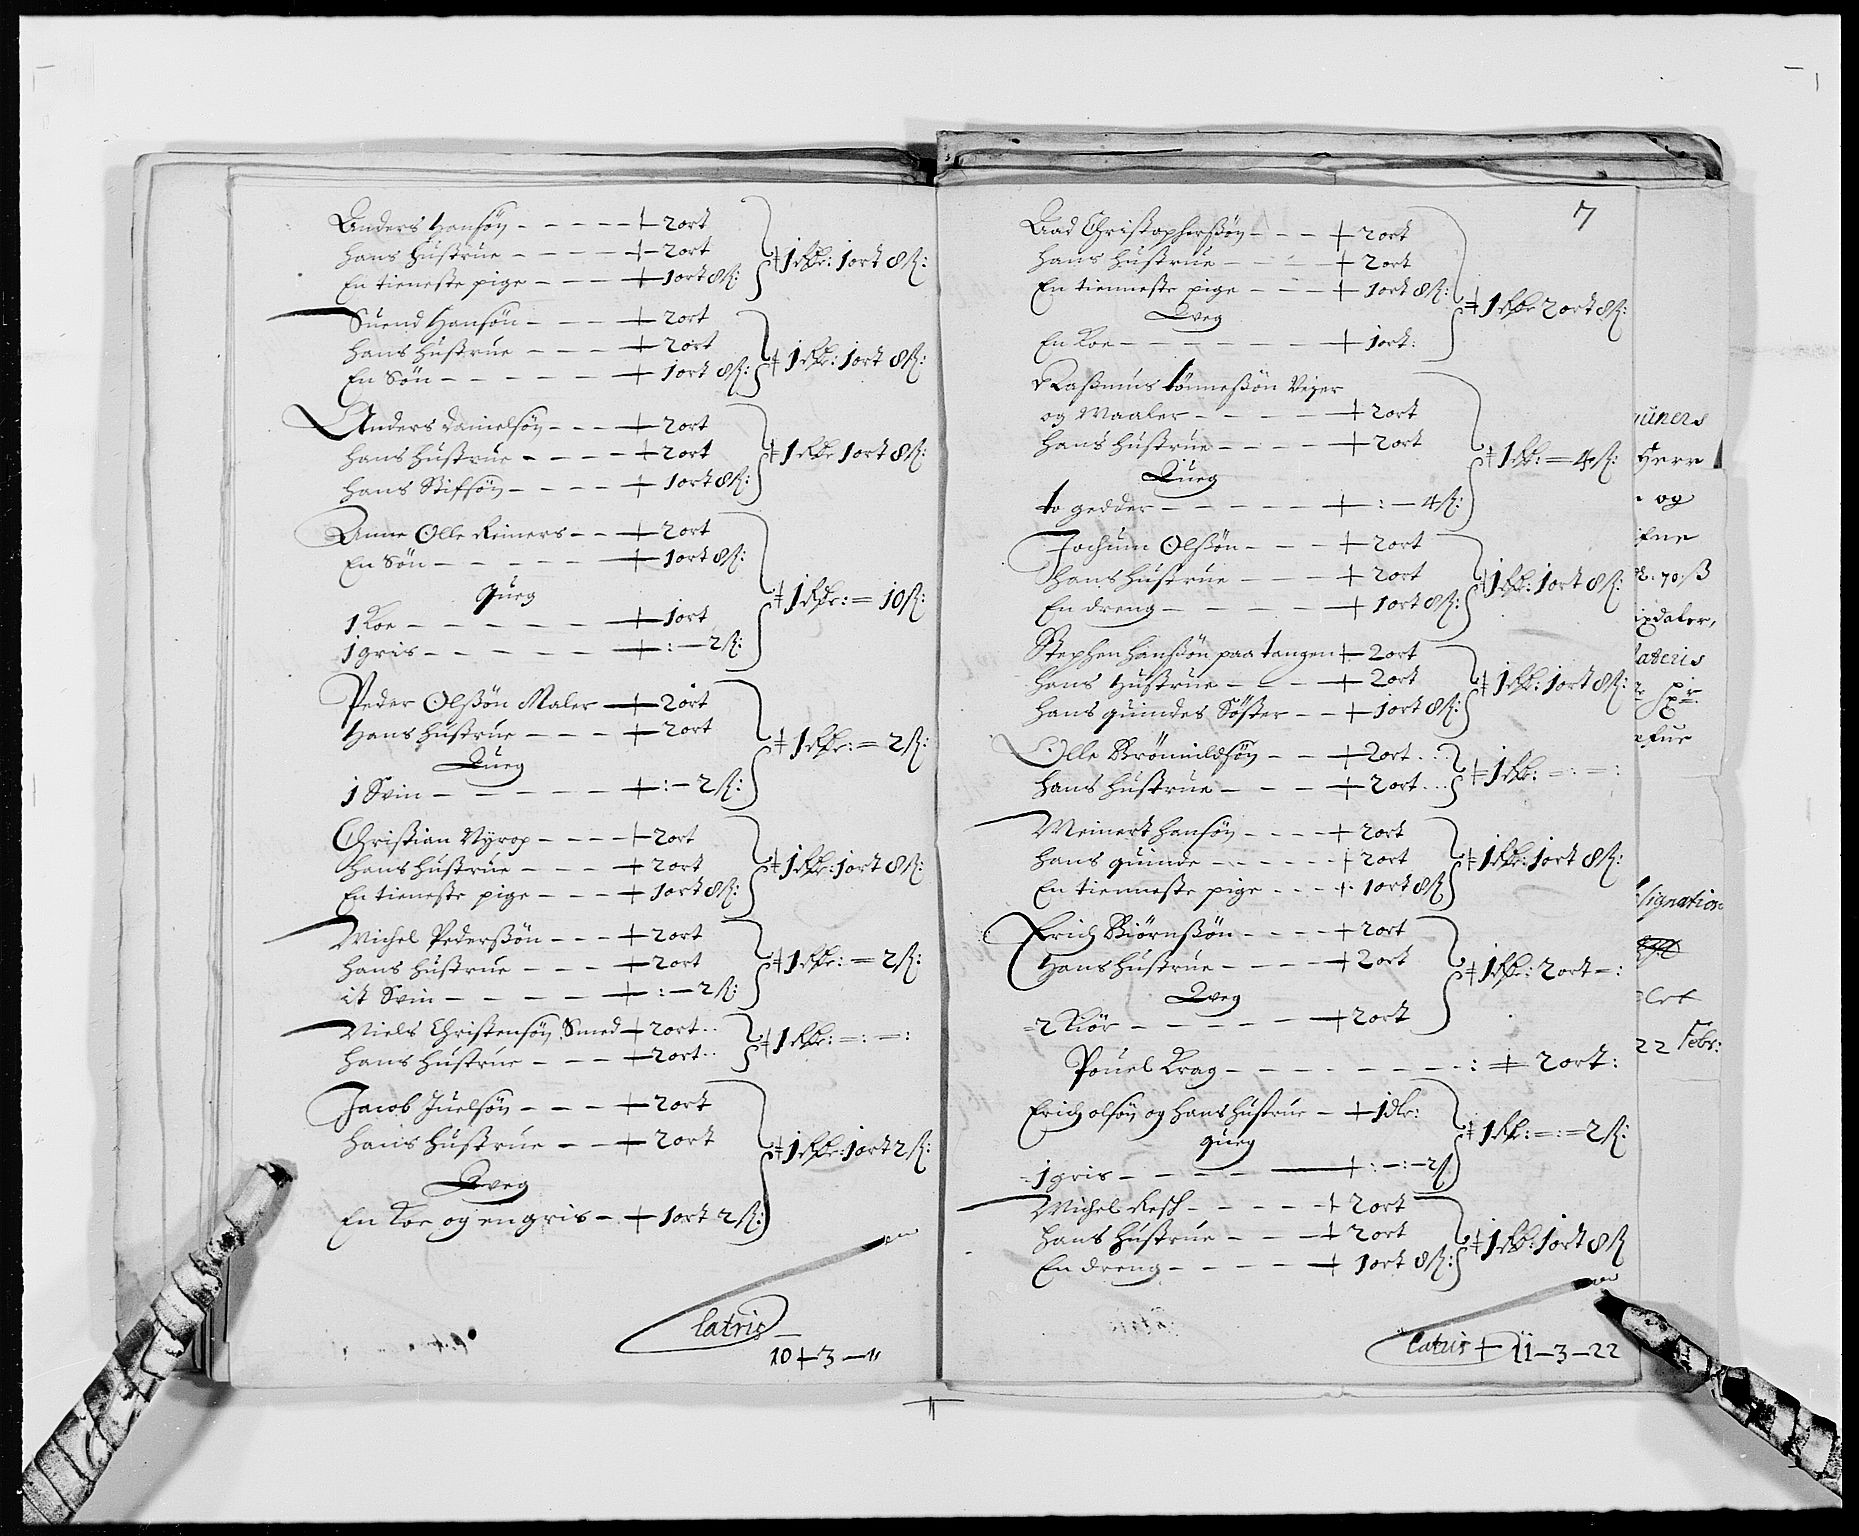 Anders Hansøn - - - - + 2 ort
Hans Hustrue - - - - + 2 ort
En tieneste pige - - - + 1 ort 8 ß: + 1 Rdr: 1 ort 8 ß:
Suend Hansøn - - - - + 2 ort
Hans Hustrue - - - - + 2 ort
En Søn - - - - - - + 1 ort 8 ß: + 1 Rdr: 1 ort 8 ß:
Anders Danielsøn - - - + 2 ort
Hans Hustrue - - - - + 2 ort
Hans Stifsøn - - - - + 1 ort 8 ß: + 1 Rdr 1 ort 8 ß:
Anne Olle Reiners - - + 2 ort
En Søn - - - - - + 1 ort 8 ß:
Queg
1 Koe - - - - - - + 1 ort
1 gris - - - - - + : - 2 ß: + 1 Rdr: = 10 ß:
Peder Olßøn Maler + 2 ort
Hans Hustrue - - - + 2 ort
Queg
1 Svin - - - - - + : - 2 ß: + 1 Rdr: = 2 ß:
Christian Nyrop - - - - + 2 ort
Hans Hustrue - - - + 2 ort
En tieneste pige - - - + 1 ort 8 ß: + 1 Rdr: 1 ort 8 ß:
Michel Pederßøn - - - + 2 ort
Hans Hustrue - - - + 2 ort
it Svin - - - - - + : - 2 ß: + 1 Rdr: = 2 ß:
Niels Christensøn Smed + 2 ort
Hans Hustrue - - - + 2 ort + 1 Rdr: = : = :
Jacob Juelsøn - - - + 2 ort
Hans Hustrue - - + 2 ort
Qveg
En Koe og en gris - + 1 ort 2 ß: + 1 Rdr: 1 ort 2 ß:
latris
10 + 3 - 11
7
Aad Christophersøn - - - + 2 ort
Hans Hustrue - - - + 2 ort
En tienneste pige - - - + 1 ort 8 ß:
Qveg
En Koe - - - - - - + 1 ort: + 1 Rdr 2 ort 8 ß:
Raßmus Tønneßøn Vejer
og Maaler - - - - - + 2 ort
Hans Hustrue - - - - + 2 ort
Queg
to gedder - - - - - + : - 4 ß: + 1 Rdr: = 4 ß:
Jochum Olßøn - - - + 2 ort
Hans Hustrue - - - + 2 ort
En dreng - - - - - + 1 ort 8 ß: + 1 Rdr: 1 ort 8 ß:
Stephen Hanßøn paa tangen + 2 ort
Hans Hustrue - - - + 2 ort
Hans quindes Søster - - + 1 ort 8 ß: + 1 Rdr: 1 ort 8 ß:
Olle Brømildsøn - - + 2 ort
Hans Hustrue - - - + 2 ort + 1 Rdr: = : = :
Meinert Hansøn - - - - + 2 ort
Hans quinde - - - - - + 2 ort
En tienneste pige - - - + 1 ort 8 ß + 1 Rdr: 1 ort 8 ß:
Erich Biørnßøn - - - - + 2 ort
Hans Hustrue - - - - + 2 ort
Qveg
2 Kiør - - - - - + 2 ort + 1 Rdr: 2 ort = :
Pouel Krag - - - - - - - - : + 2 ort:
Erich olsøn og Hans Hustrue - + 1 dlr:
queg
1 gris - - - - + : - : - 2 ß + 1 Rdr: = : = 2 ß:
Michel Resk - - - - - + 2 ort
Hans Hustrue - - - + 2 ort
En dreng - - - - - + 1 ort 8 ß: + 1 Rdr: 1 ort 8 ß
latris + 11 - 3 - 22
Herr
og
lateris
signation
22 Febr: